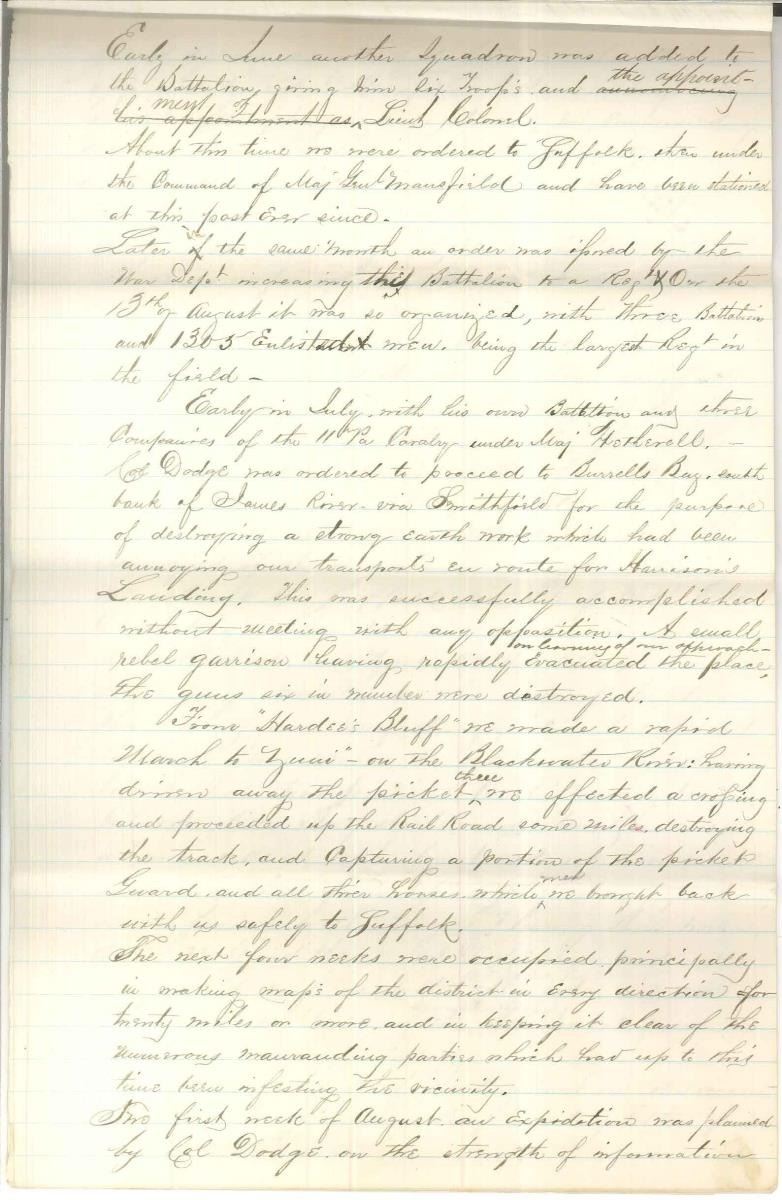 Early in June another Squadron was added to
the Battalion, giving him six Troops and the appoint-
announcing
ment of
his appointment as Lieut Colonel.
About this time we were ordered to Suffolk. then under
the Command of Maj Genl Mansfield and have been stationed
at this post ever since.
Later in
of the same month an order was issued by the
War Dept increasing this Battalion to a Regt On the
13th of August it was so organized, with three Battalion
and 1305 Enlisted men. being the largest Regt in
the field -
Early in July. with his own Battalion and three
Companies of the 11th Pa Cavalry under Maj Hetherell. -
Col Dodge was ordered to proceed to Burrells Bay. south
bank of James River - via Smithfield for the purpose
of destroying a strong earth work which had been
annoying our transports en route for Harrison's
Landing. This was successfully accomplished
without meeting with any opposition. A small
on learning of our approach -
rebel garrison having rapidly evacuated the place,
the guns six in number were destroyed.
From "Hardee's Bluff" we made a rapid
March to Zuni" - on the Blackwater River: having
there
driven away the picket we effected a crossing
and proceeded up the Rail Road some miles. destroying
the track, and Capturing a portion of the picket
men
Guard. and all thier horses. which we brought back
with us safely to Suffolk.
The next four weeks were occupied principally
in making map's of the district in Every direction for
twenty miles or more. and in keeping it clear of the
numerous mauranding parties which had up to this
time been infesting the vicinity.
The first week of August. an Expidation was planned
by Col Dodge. on the strength of information